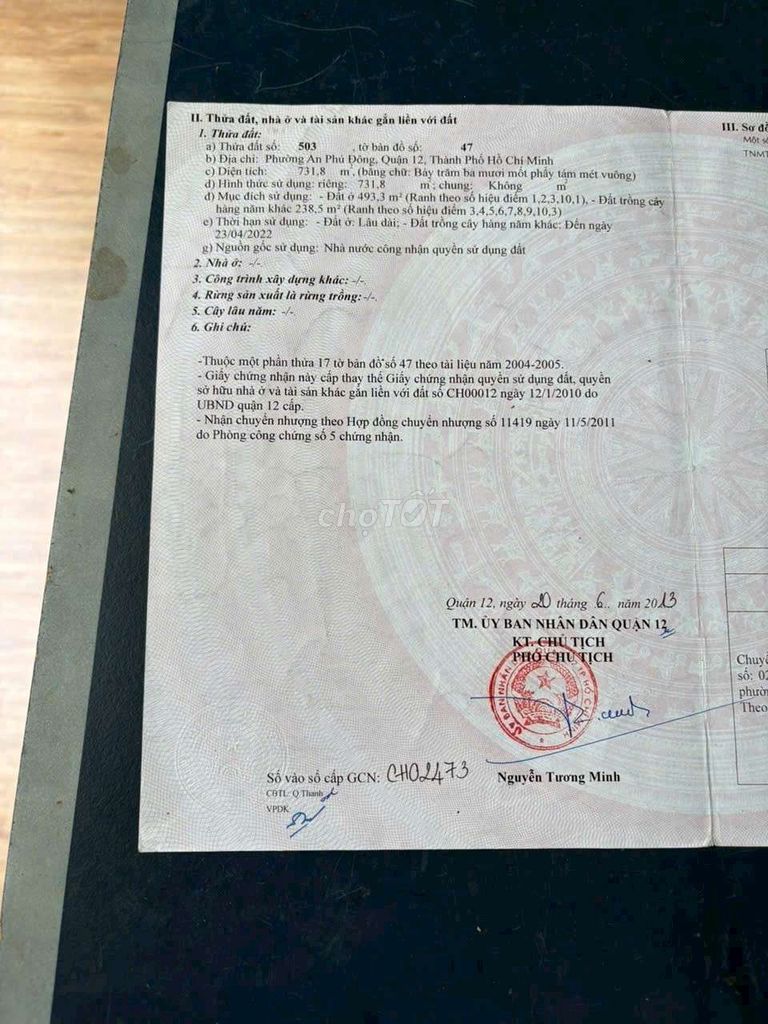 II. Thửa đất, nhà ở và tài sản khác gắn liền với đất
1. Thửa đất:
a) Thửa đất số: 503 , tờ bản đồ số: 47
b) Địa chỉ: Phường An Phú Đông, Quận 12, Thành Phố Hồ Chí Minh
c) Diện tích: 731,8 m², (bằng chữ: Bảy trăm ba mươi mốt phẩy tám mét vuông)
d) Hình thức sử dụng: riêng: 731,8 m²; chung: Không m²
đ) Mục đích sử dụng: - Đất ở 493,3 m² (Ranh theo số hiệu điểm 1,2,3,10,1), - Đất trồng cây
hàng năm khác 238,5 m² (Ranh theo số hiệu điểm 3,4,5,6,7,8,9,10,3)
e) Thời hạn sử dụng: - Đất ở: Lâu dài; - Đất trồng cây hàng năm khác: Đến ngày
23/04/2022
g) Nguồn gốc sử dụng: Nhà nước công nhận quyền sử dụng đất
2. Nhà ở: -/-
3. Công trình xây dựng khác: -/-.
4. Rừng sản xuất là rừng trồng: -/-.
5. Cây lâu năm: -/-
6. Ghi chú:
-Thuộc một phần thửa 17 tờ bản đồ số 47 theo tài liệu năm 2004-2005.
- Giấy chứng nhận này cấp thay thế Giấy chứng nhận quyền sử dụng đất, quyền
sở hữu nhà ở và tài sản khác gắn liền với đất số CH00012 ngày 12/1/2010 do
UBND quận 12 cấp.
- Nhận chuyển nhượng theo Hợp đồng chuyển nhượng số 11419 ngày 11/5/2011
do Phòng công chứng số 5 chứng nhận.
chợTỐT
Quận 12, ngày 20 tháng 6.. năm 2013
TM. ỦY BAN NHÂN DÂN QUẬN 12
KT. CHỦ TỊCH
PHÓ CHỦ TỊCH
Nguyễn Tương Minh
Số vào sổ cấp GCN: CH02473
CBTL: Q.Thanh
VPDK:
III. Sơ đồ
Một số
TNMT
Chuyể
số: 02
phườn
Theo